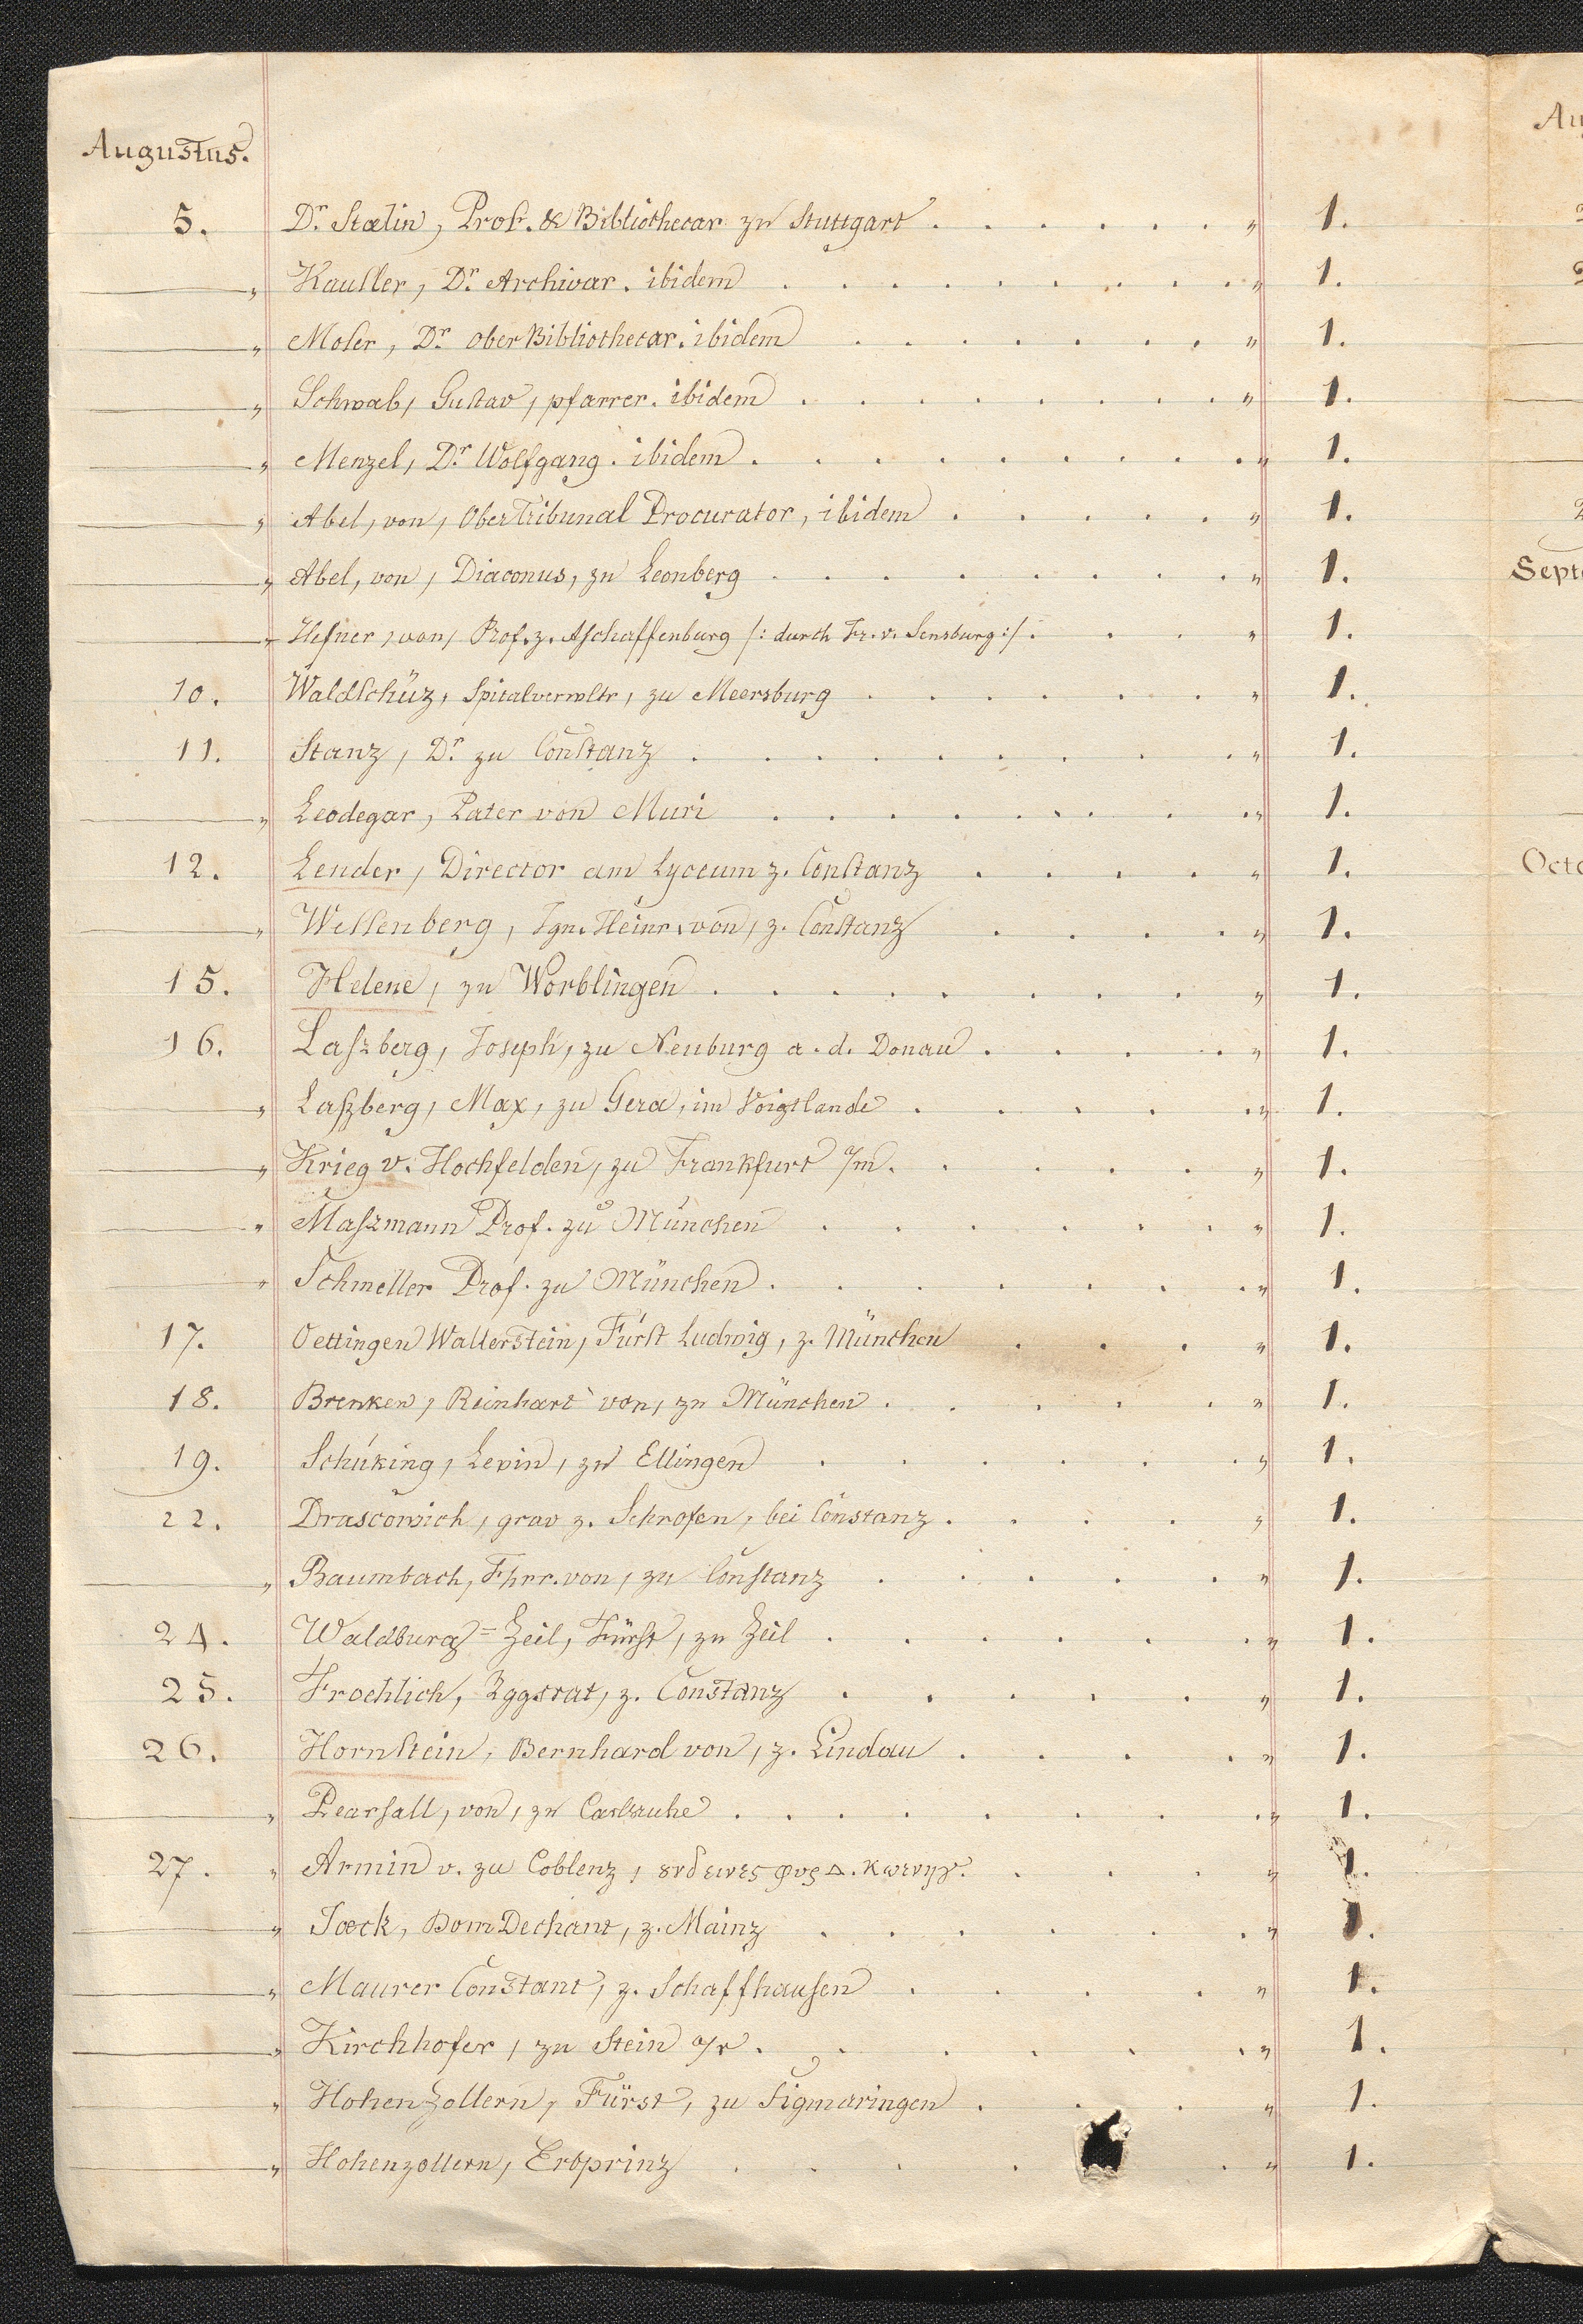 Augustus.
5. Dr. Stælin, Prof. & Bibliothecar zu Stuttgart . . . . . . " 1.
" Kausler, Dr. Archivar. ibidem . . . . . . . . " 1.
" Moser, Dr. Ober Bibliothecar. ibidem . . . . . . . " 1.
" Schwab, Gustav, pfarrer. ibidem . . . . . . . . " 1.
" Menzel, Dr. Wolfgang. ibidem . . . . . . . . . " 1.
" Abel, von, Ober Tribunal Procurator, ibidem . . . . . " 1.
" Abel, von, Diaconus, zu Leonberg . . . . . . . . " 1.
" Hefner, von, Prof. z. Aschaffenburg /: durch Fr. v. Sensburg :/ . . . " 1.
10. Waldschüz, Spitalverwltr, zu Meersburg . . . . . . " 1.
11. Stanz, Dr. zu Constanz . . . . . . . . " 1.
" Leodegar, Pater von Muri . . . . . . . . " 1.
12. Lender, Director am Lyceum z. Constanz . . . . " 1.
" Wessenberg, Ign. Heinr. von, z. Constanz . . . . " 1.
15. Helene, zu Worblingen . . . . . . . . " 1.
16. Laszberg, Joseph, zu Neuburg a. d. Donau . . . . " 1.
" Laßberg, Max, zu Gera, im Voigtlande . . . . . " 1.
" Krieg v. Hochfelden, zu Frankfurt a/m. . . . . " 1.
" Maszmann Prof. zu München . . . . . . " 1.
" Schmeller Prof. zu München . . . . . . . " 1.
17. Oettingen Wallerstein, Fürst Ludwig, z. München . . . " 1.
18. Brenken, Reinhart von, zu München . . . . . . " 1.
19. Schüking, Levin, zu Ellingen . . . . . . " 1.
22. Drascowich, grav z. Schrofen, bei Constanz . . . . " 1.
" Baumbach, Fhrr. von, zu Constanz . . . . . " 1.
24. Waldburg=Zeil, Fürst, zu Zeil . . . . . . " 1.
25. Froehlich, Rggsrat, z. Constanz . . . . . " 1.
26. Hornstein, Bernhard von, z. Lindau . . . . " 1.
" Pearsall, von, zu Carlsruhe . . . . . . . . " 1.
27. " Armin v. zu Coblenz, . . . " 1.
" Jæck, Dom Dechant, z. Mainz . . . . . . " 1.
" Maurer Constant, z. Schaffhausen . . . . " 1.
" Kirchhofer, zu Stein a/r . . . . . . " 1.
" Hohenzollern, Fürst, zu Sigmaringen . . . " 1.
" Hohenzollern, Erbprinz . . . . . " 1.
Au
Septe
Octo